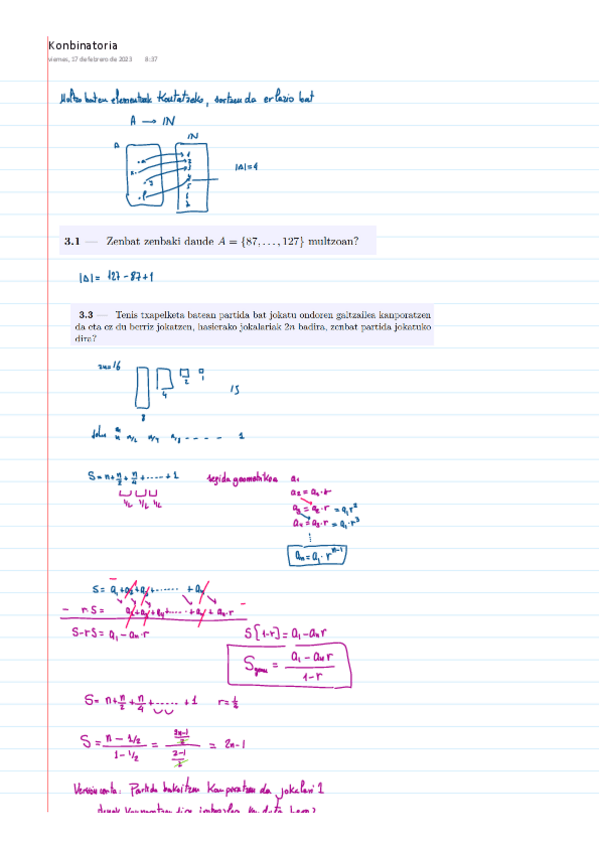 Konbinatoria
viernes, 17 de febrero de 2023 8:37
Multzo baten elementuak kontatzeko, sortzen da erlazio bat
A → IN
A
IN
|A|=4
3.1 — Zenbat zenbaki daude A = {87, . . . , 127} multzoan?
|A|= 127-87+1
3.3 — Tenis txapelketa batean partida bat jokatu ondoren galtzailea kanporatzen
da eta ez du berriz jokatzen, hasierako jokalariak 2n badira, zenbat partida jokatuko
dira?
2n=16
8
4
2
1
15
n n/2 n/4 n/8 - - - - - 1
S= n+n/2+n/4+......+1
1/2 1/2 1/2
segida geometrikoa
a₁
a₂=a₁·r
a₃=a₂·r = a₁r²
a₄=a₃·r = a₁·r³
aₙ=a₁·rⁿ⁻¹
S= a₁+a₂+a₃+...... +aₙ
- rS= a₂+a₃+a₄+.....+aₙ+aₙ·r
S-rS= a₁-aₙ·r
S[1-r]=a₁-aₙr
S = (a₁-aₙr)/(1-r)
S= n+n/2+n/4+......+1 r=1/2
S= (n-1/2)/(1-1/2) = ((2n-1)/2)/((2-1)/2) = 2n-1
Partida bakoitzean kanporatzen da jokalari 1